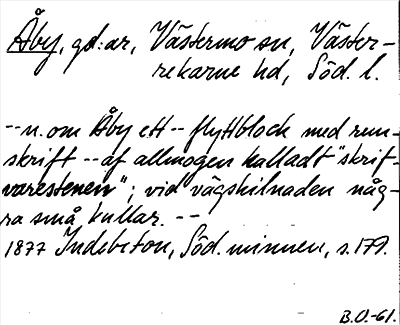 Åby, gd:ar, Västermo sn, Väster-
rekarne hd, Söd. l.
--n. om Åby ett -- flyttblock med run-
skrift -- af allmogen kalladt "skrif-
varestenen"; vid vägskilnaden någ-
ra små kullar. --
1877 Indebetou, Söd. minnen, s. 179.
B.O.-61.